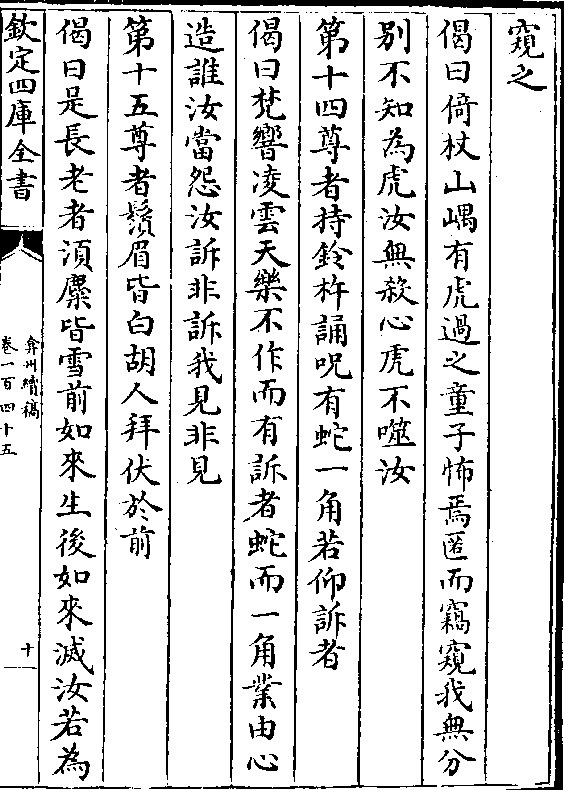 窺之
偈曰倚杖山嵎有虎過之童子怖焉匿而竊窺我無分
別不知為虎汝無殺心虎不噬汝
第十四尊者持鈴杵誦呪有蛇一角若仰訴者
偈曰梵響凌雲天樂不作而有訴者蛇而一角業由心
造誰汝當怨汝訴非訴我見非見
第十五尊者鬚眉皆白胡人拜伏於前
偈曰是長老者湏麋皆雪前如來生後如來滅汝若為
欽定四庫全書
弇州續稿
卷一百四十五
十